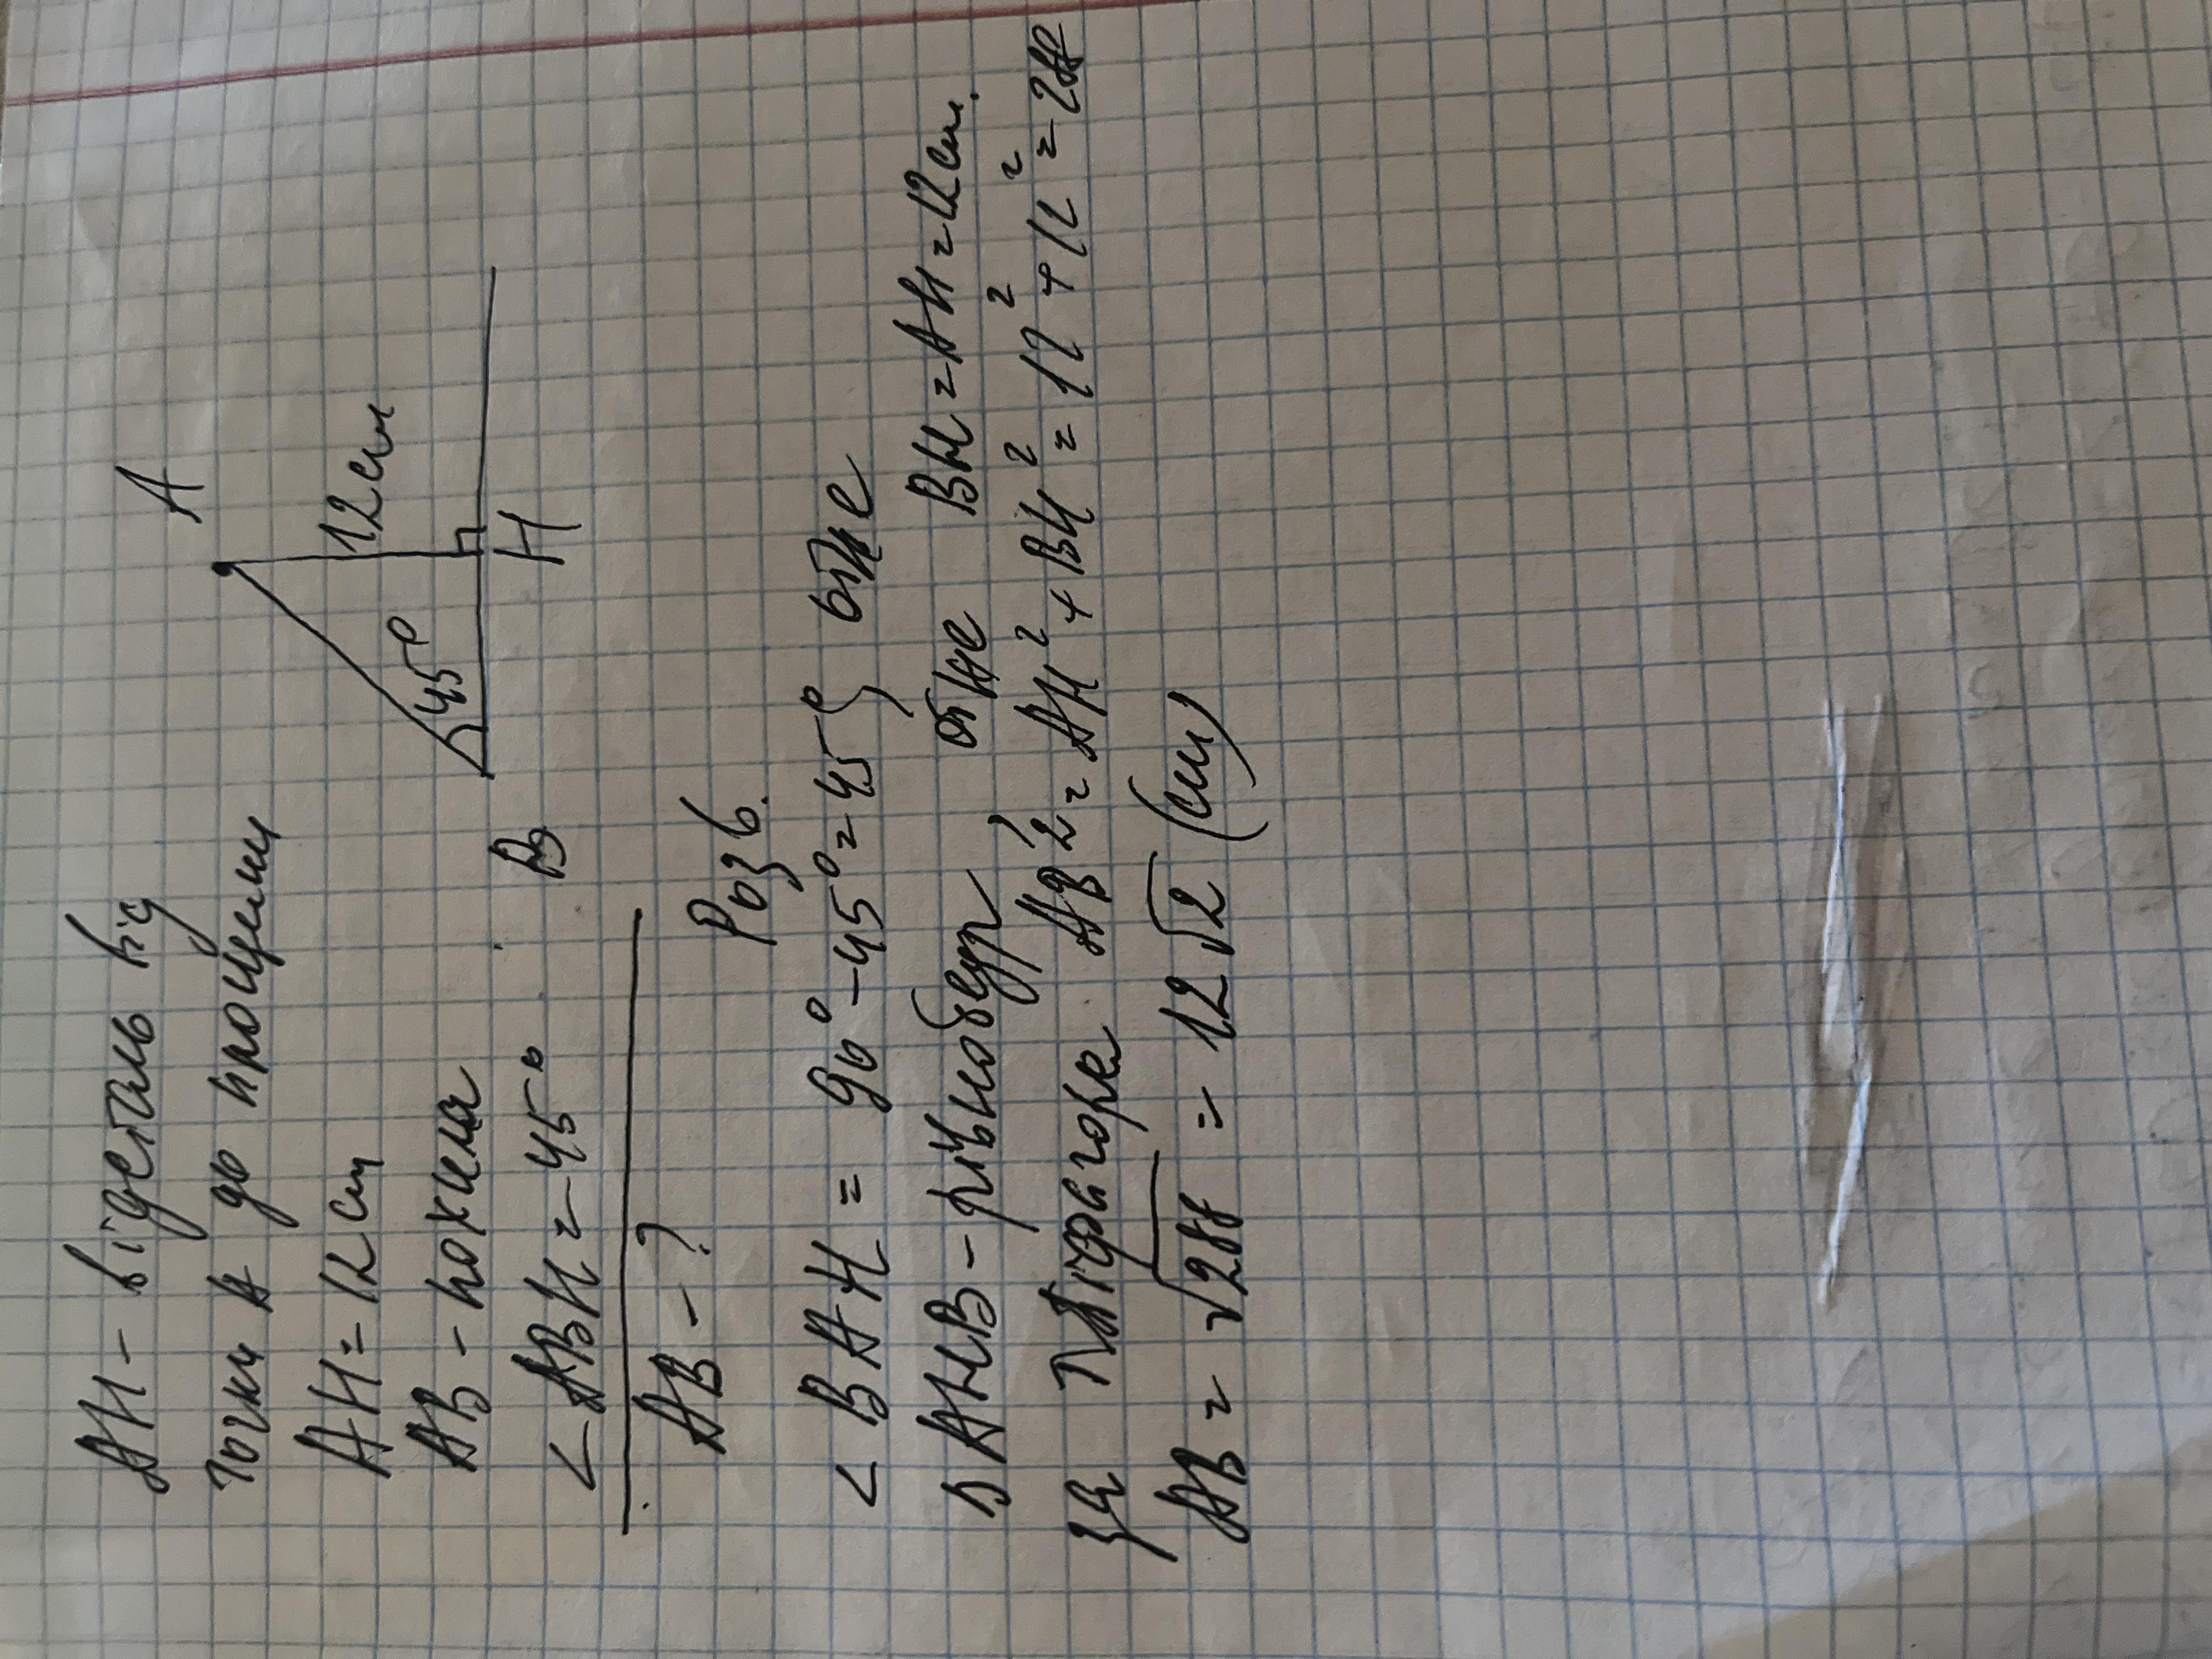 AH - відстань від
точки A до площини
AH = 12 см
AB - похила
< ABH = 45°
AB - ?
A
12 см
45°
B
H
Розв.
< BAH = 90° - 45° = 45°, отже
Δ AHB - рівнобедр, отже BH = AH = 12 см.
за Піфагора AB² = AH² + BH² = 12² + 12² =
AB = √288 = 12√2 (см)